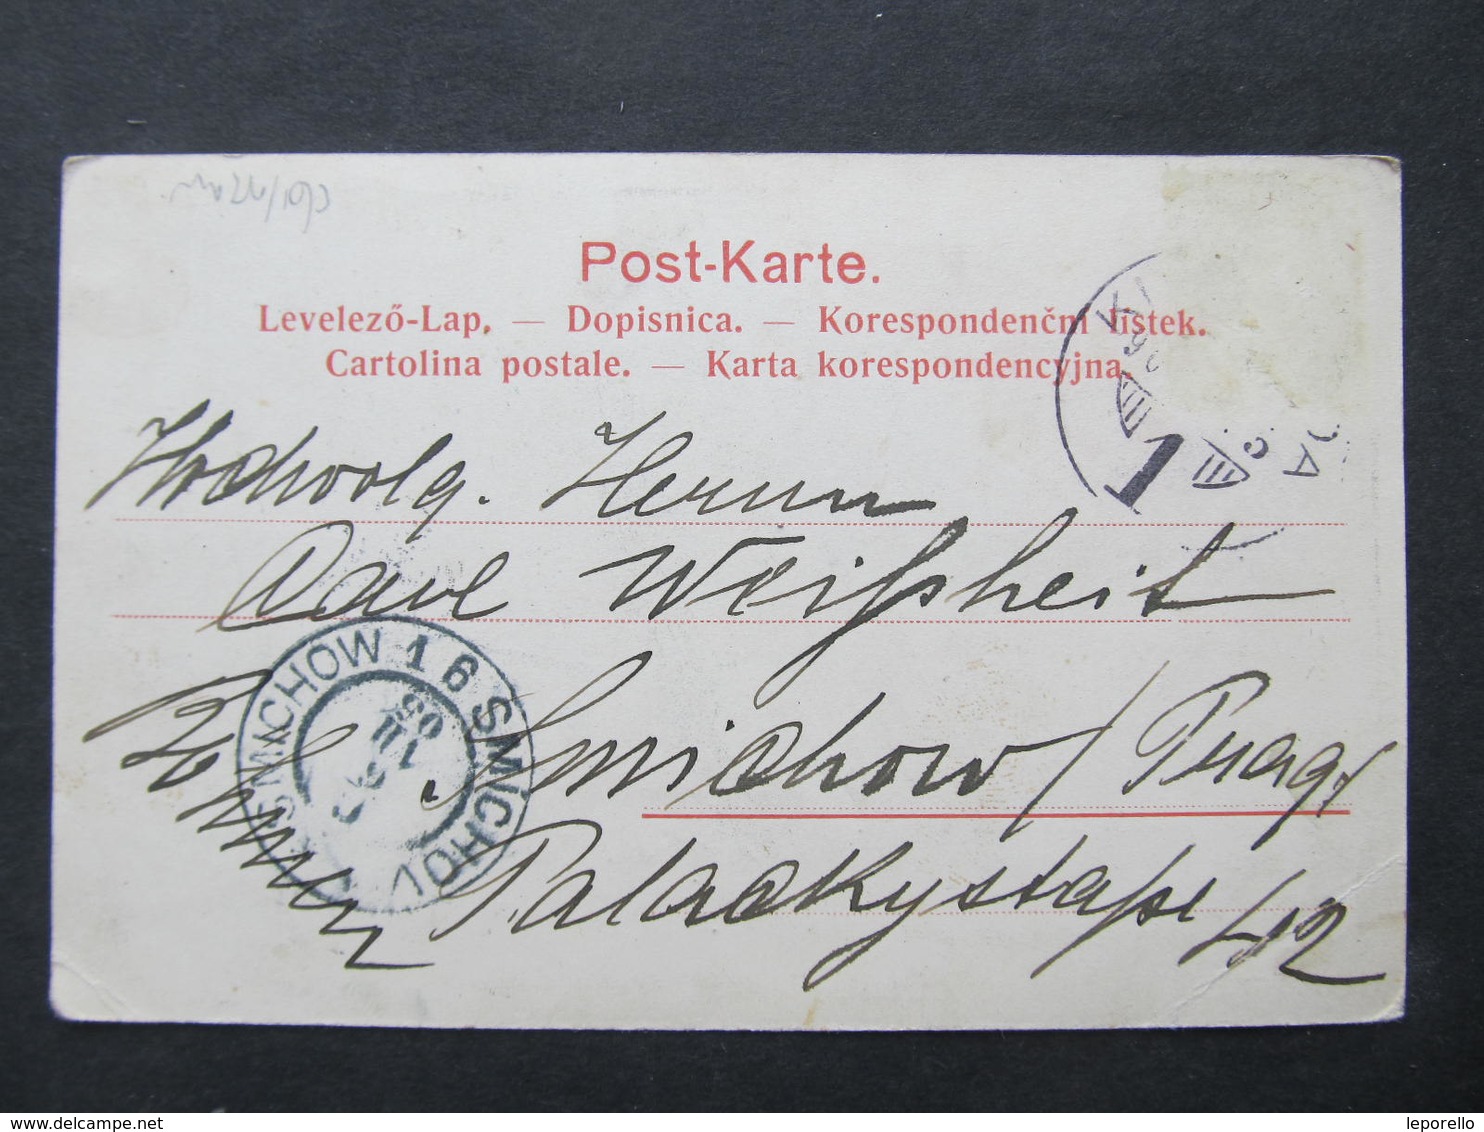 Post-Karte.
Levelező-Lap. — Dopisnica. — Korespondenční lístek.
Cartolina postale. — Karta korespondencyjna
1
Hochwolg. Herrn
Weißheit
Smichow / Prag
Palackystaße 42
SMICHOW 1 6 SMÍCHOV
03
leporello